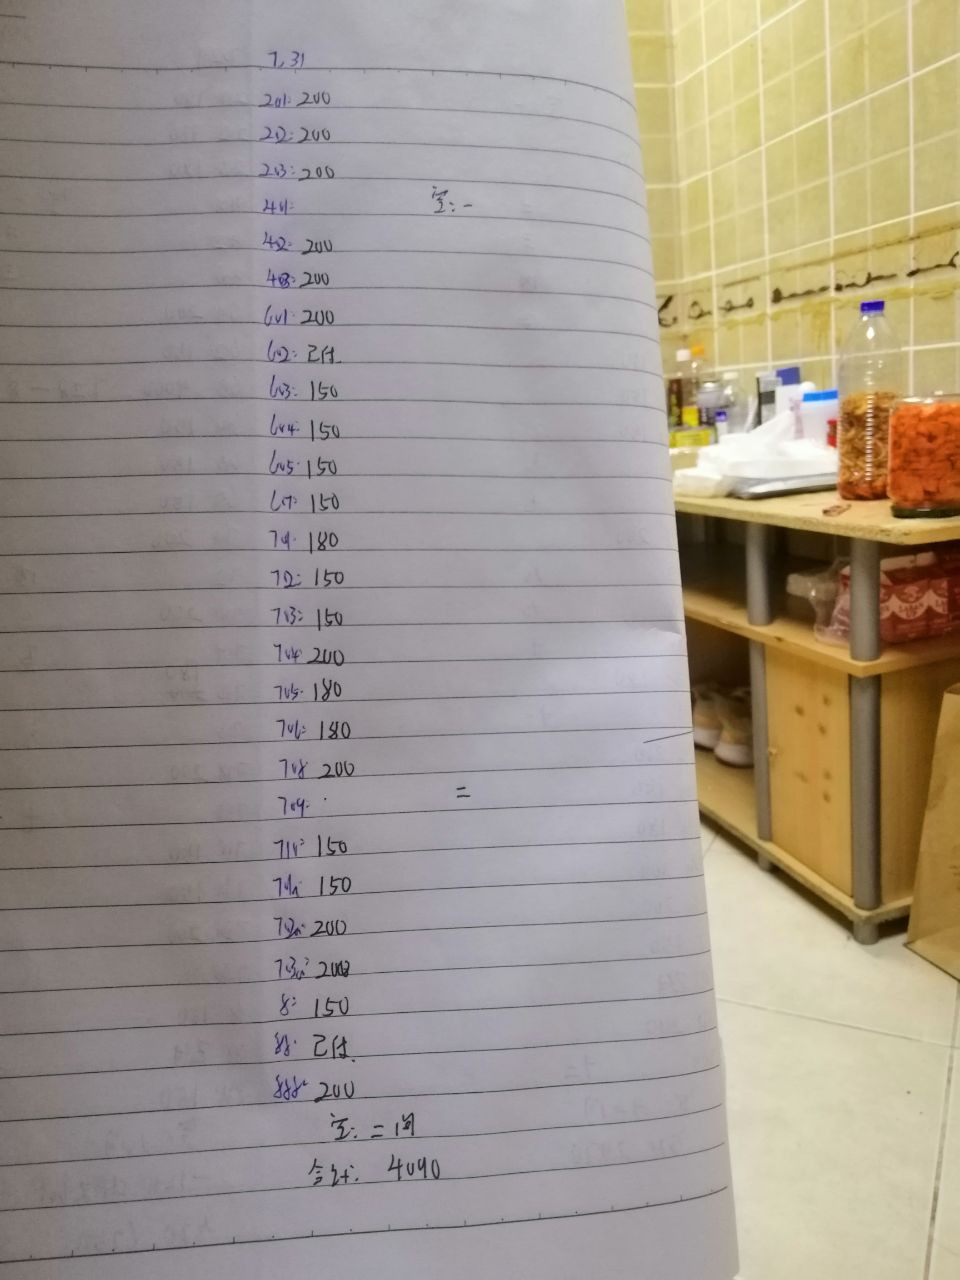 7,31
201: 200
202: 200
203: 200
401: 空:一
402: 200
403: 200
601: 200
602: 已付.
603: 150
604: 150
605: 150
607: 150
701: 180
702: 150
703: 150
704: 200
705: 180
706: 180
708 200
709: 二
710: 150
150
200
200
8: 150
88: 已付.
888: 200
空: 二间
合计: 4090